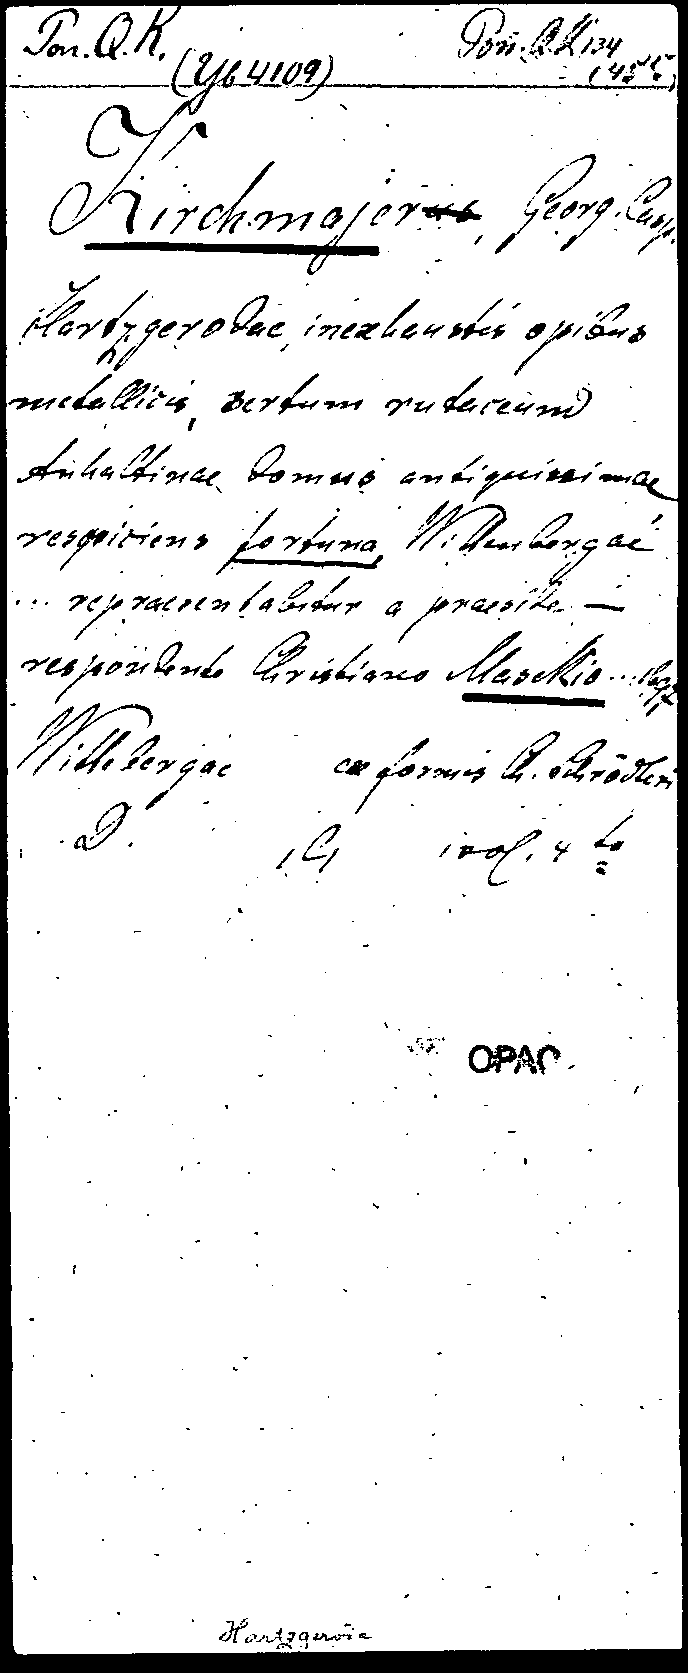 Pon. Q. K. Pon. QK 134
(Yb 4109)
Kirchmajerus, Georg. Casp.
Hartzgerodae, inexhaustis opibus
metallicis, sertum rutaceum
Anhaltinae domus antiquissimae
respiciens fortuna, Wittenbergae
... repraesentabitur a praeside —
respondente Christiano Maschio ...
Wittebergae ex formis Ch. Schrödteri
D. 1 vol. 4 to
OPAC
Hartzgeroda